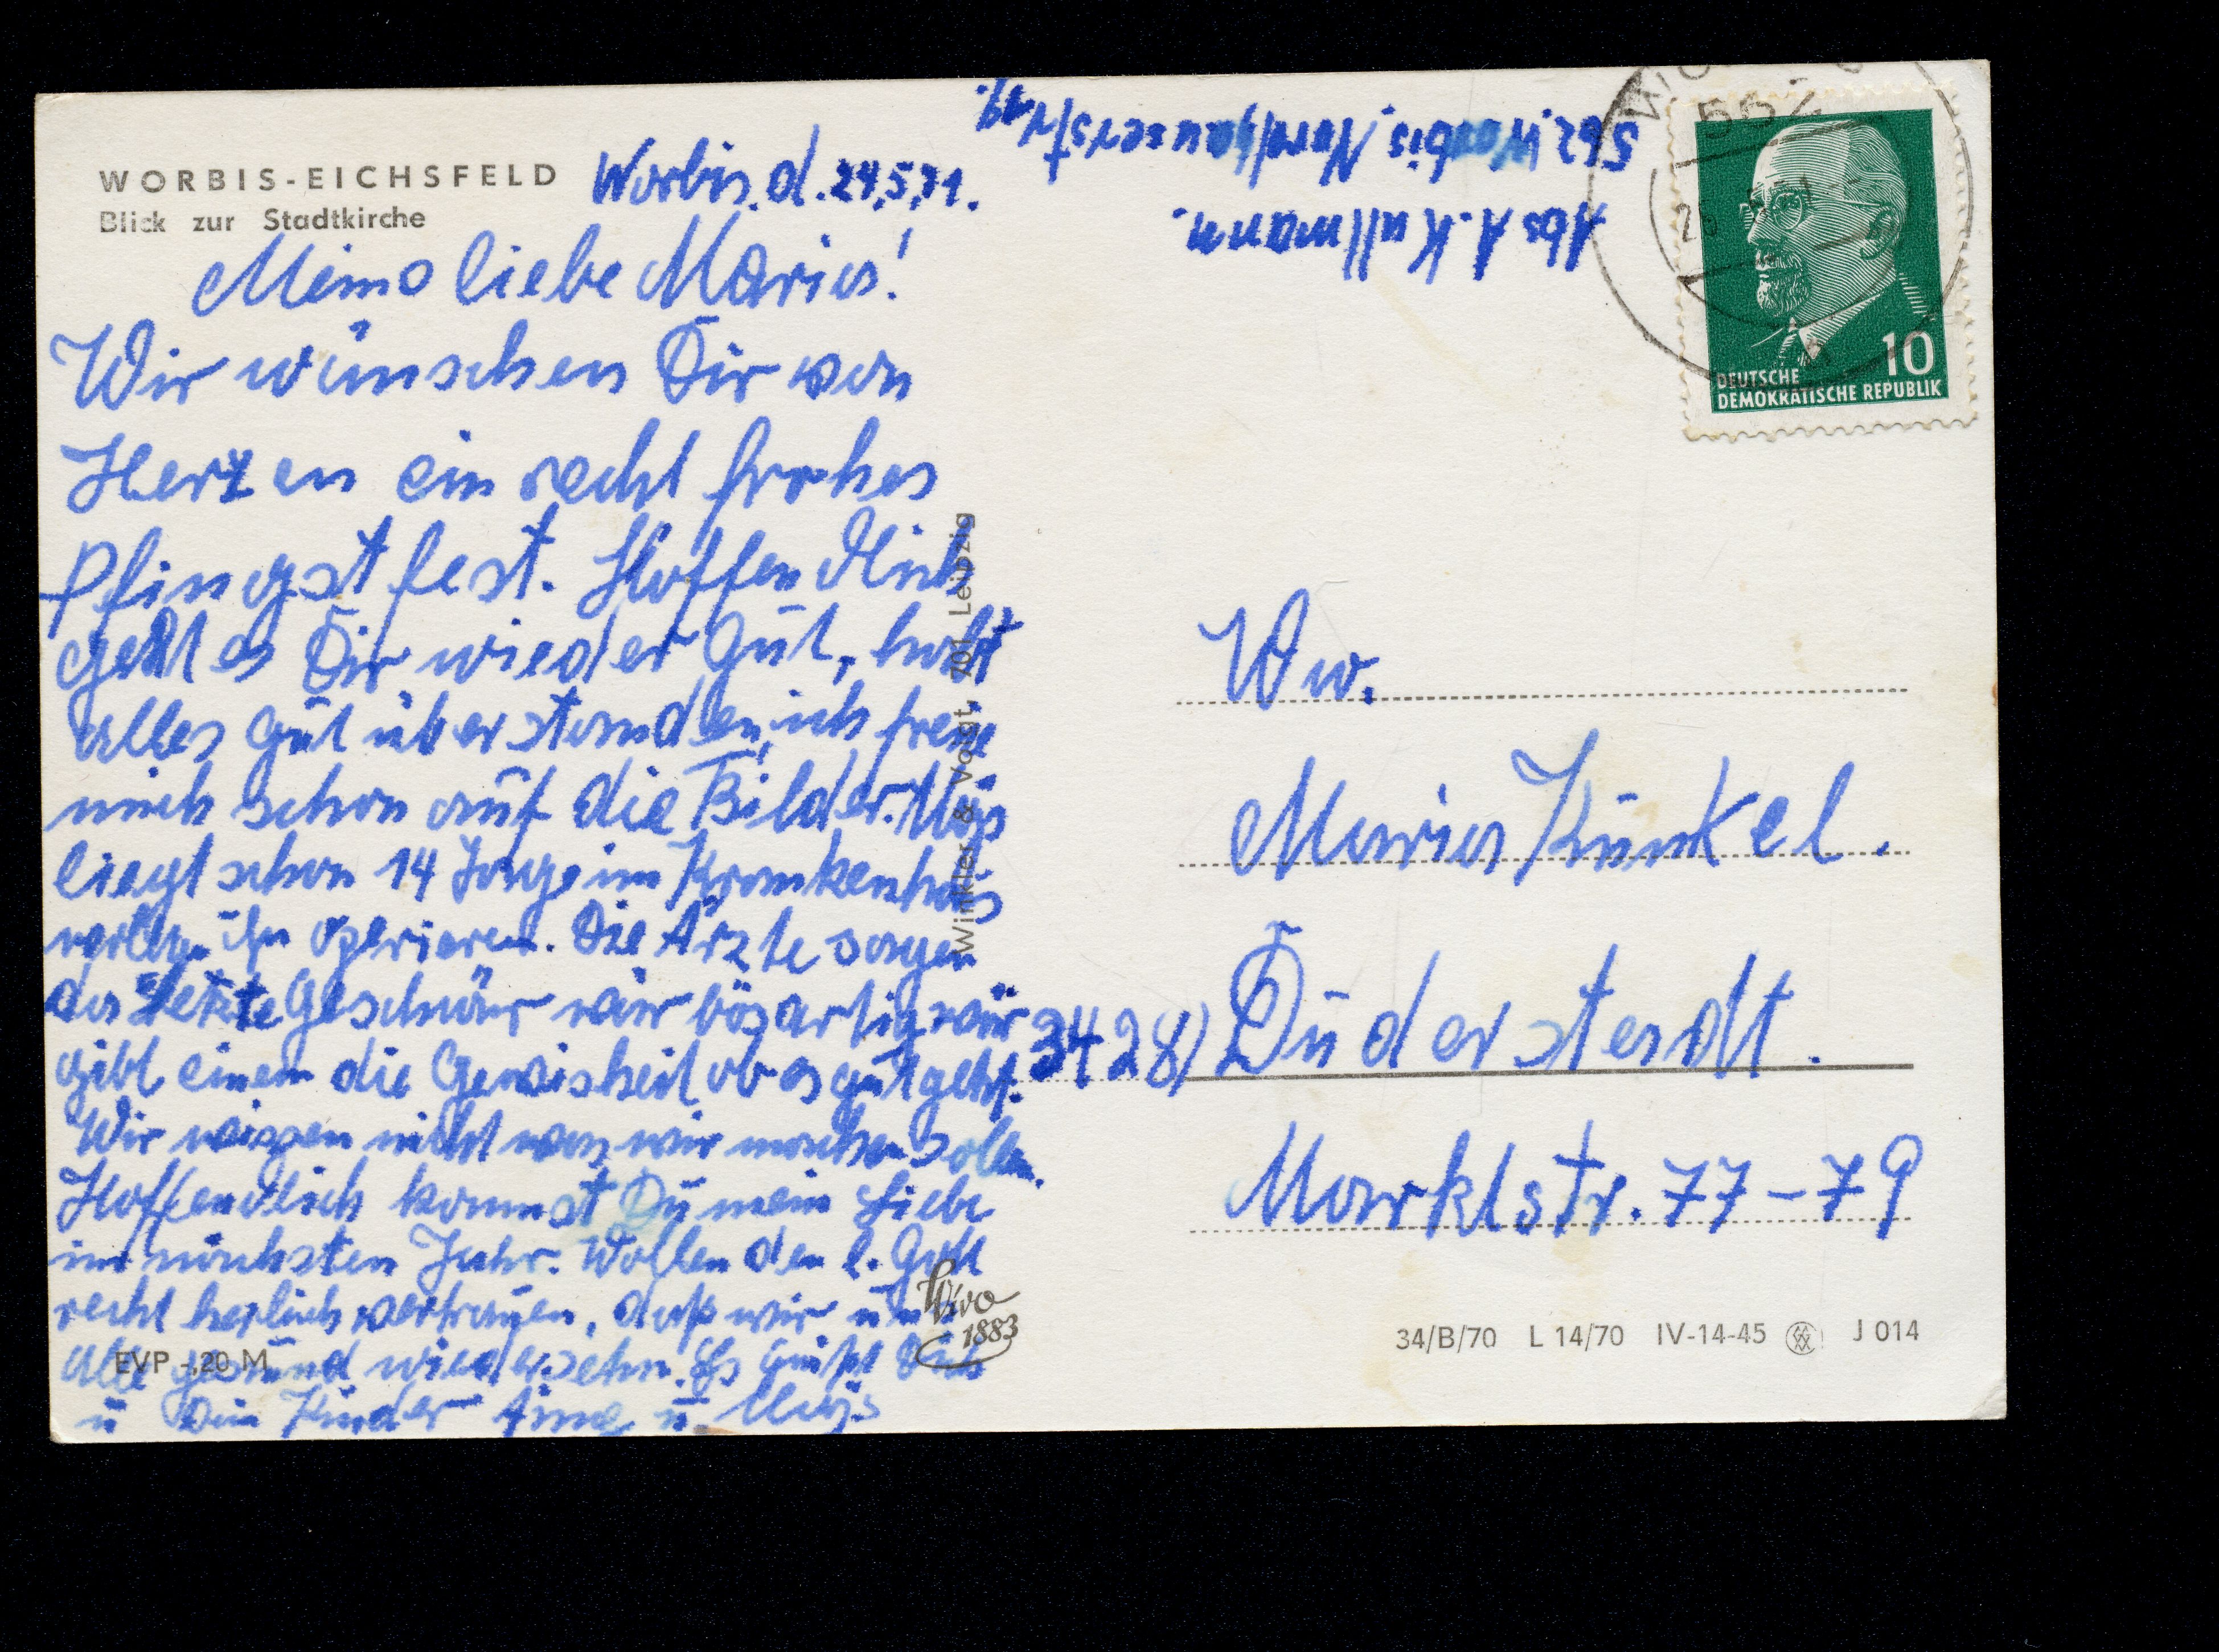 WORBIS-EICHSFELD
Blick zur Stadtkirche
Worbis, d. 24,5,71.
Meine liebe Maria!
Wir wünschen Dir von
Herzen ein recht frohes
Pfingstfest. Hoffendlich
geht es Dir wieder Gut, habt
alles Gut überstanden, ich freue
mich schon auf die Bilder.
liegt schon 14 Tage im Krankenhaus
wollen ihn operieren. Die Ärzte sagen
das letzte Geschwür wär bösartig, wär
gibt einem die Gewisheit ob es gut geht.
Wir wissen nicht was wir machen sollen.
Hoffendlich kommst Du mein Liebe
im nächsten Jahr. Wollen den l. Gott
recht herlich vertrauen, daß wir uns
alle gesund wiedersehn. Es Grüßt Dich
u Dein Kinder u.
EVP -,20 M
Winkler & Voigt, 701 Leipzig
Wivo
1883
Abs A. Kullmann.
562. Worbis, Nordhäuserstr 19.
562
10
DEUTSCHE
DEMOKRATISCHE REPUBLIK
Ww.
Maria Kunkel.
3428) Duderstadt.
Marktstr. 77-79
34/B/70 L 14/70 IV-14-45 J 014